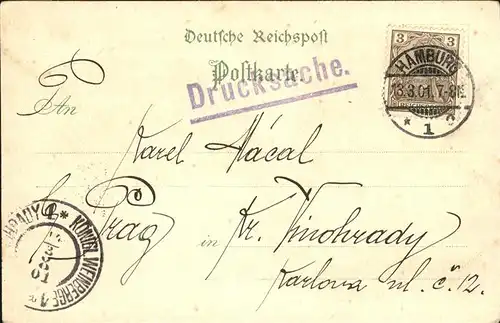 Deutsche Reichspost
Postkarte
Drucksache.
3 3
HAMBURG
13.3.01.7-8
* 1
An
Karel Mácal
Prag
in Kr. Vinohrady
Karlova ul. č. 12.
KÖNIGL. WEINBERGE 1